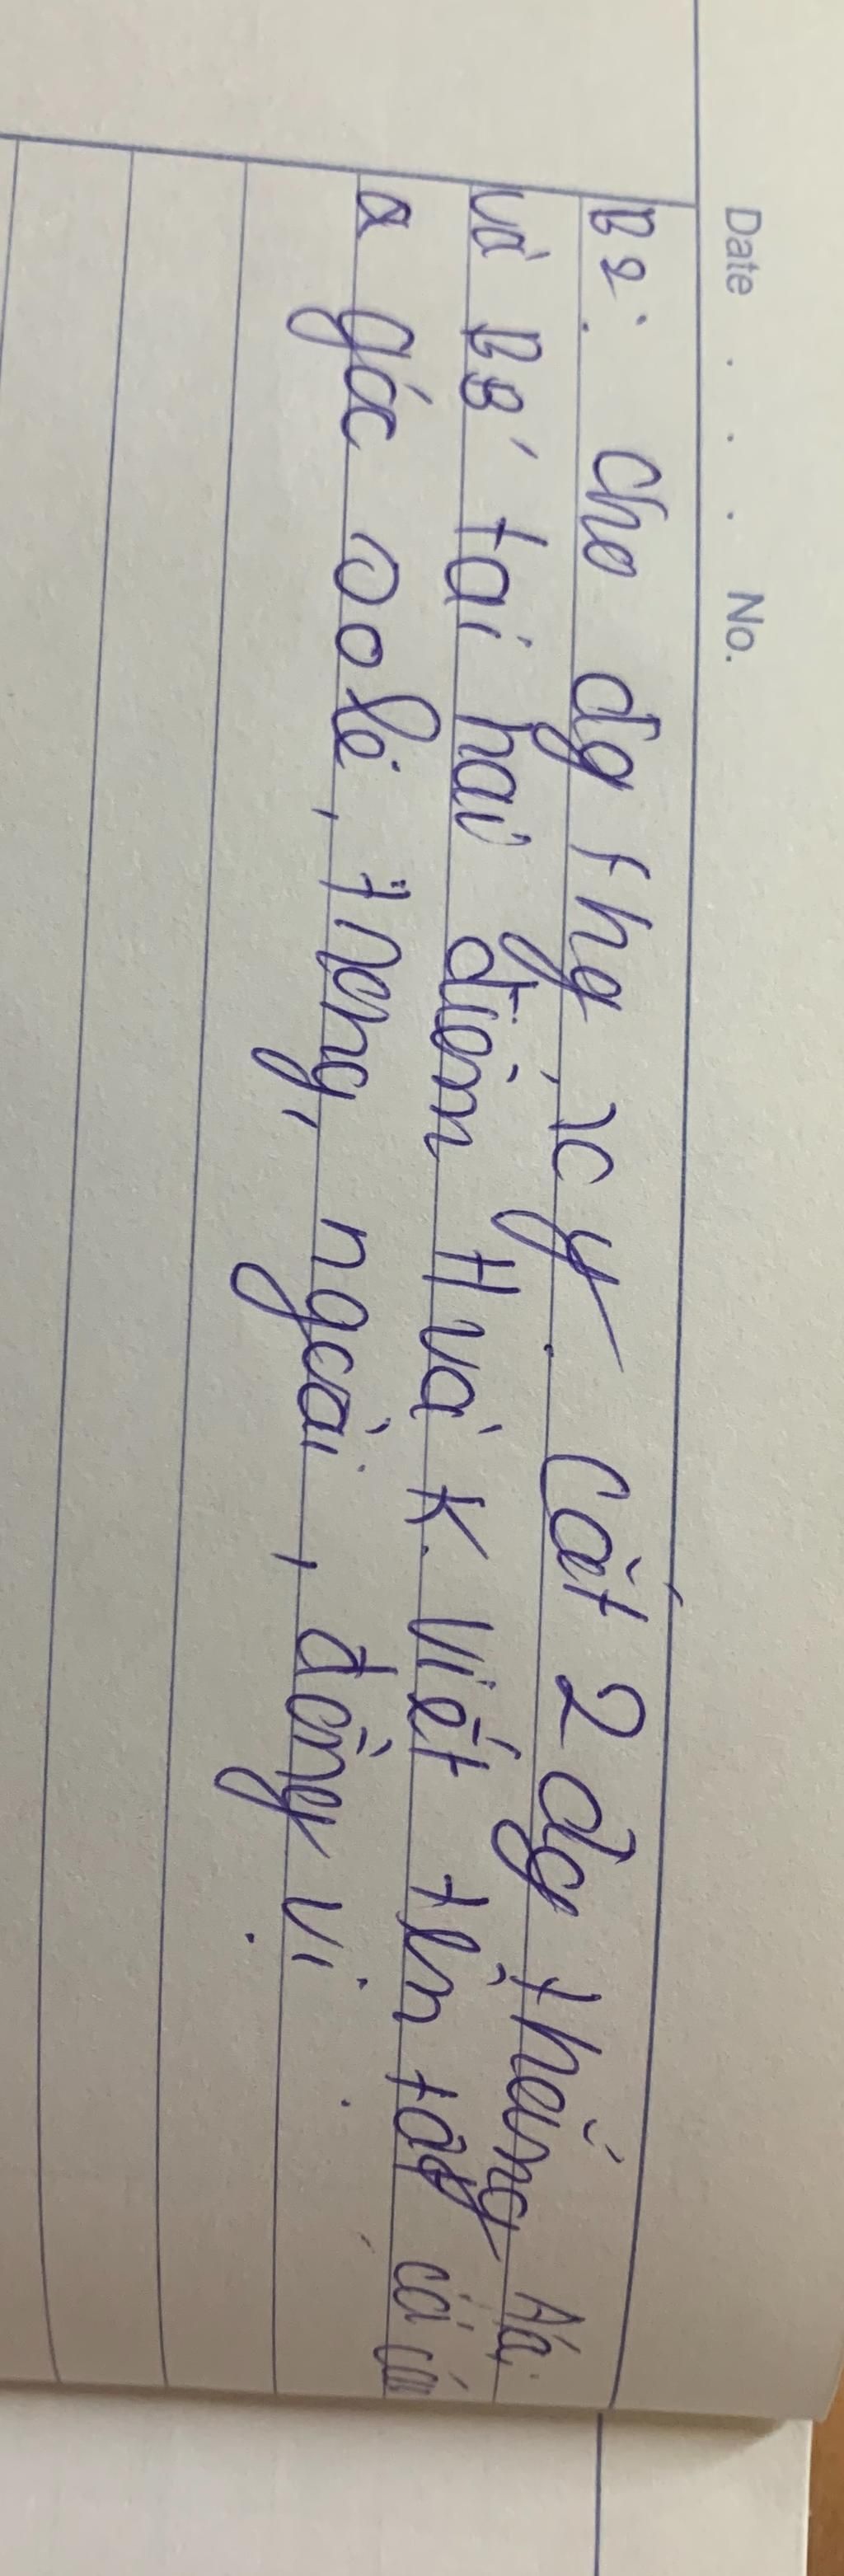 Date . . . No.
B2: Cho dg thg xy. Cắt 2 dg thẳng Aa
và Bb tại hai điểm H và K. Viết tên tất cả các
góc sole, trong, ngoài, đồng vị.